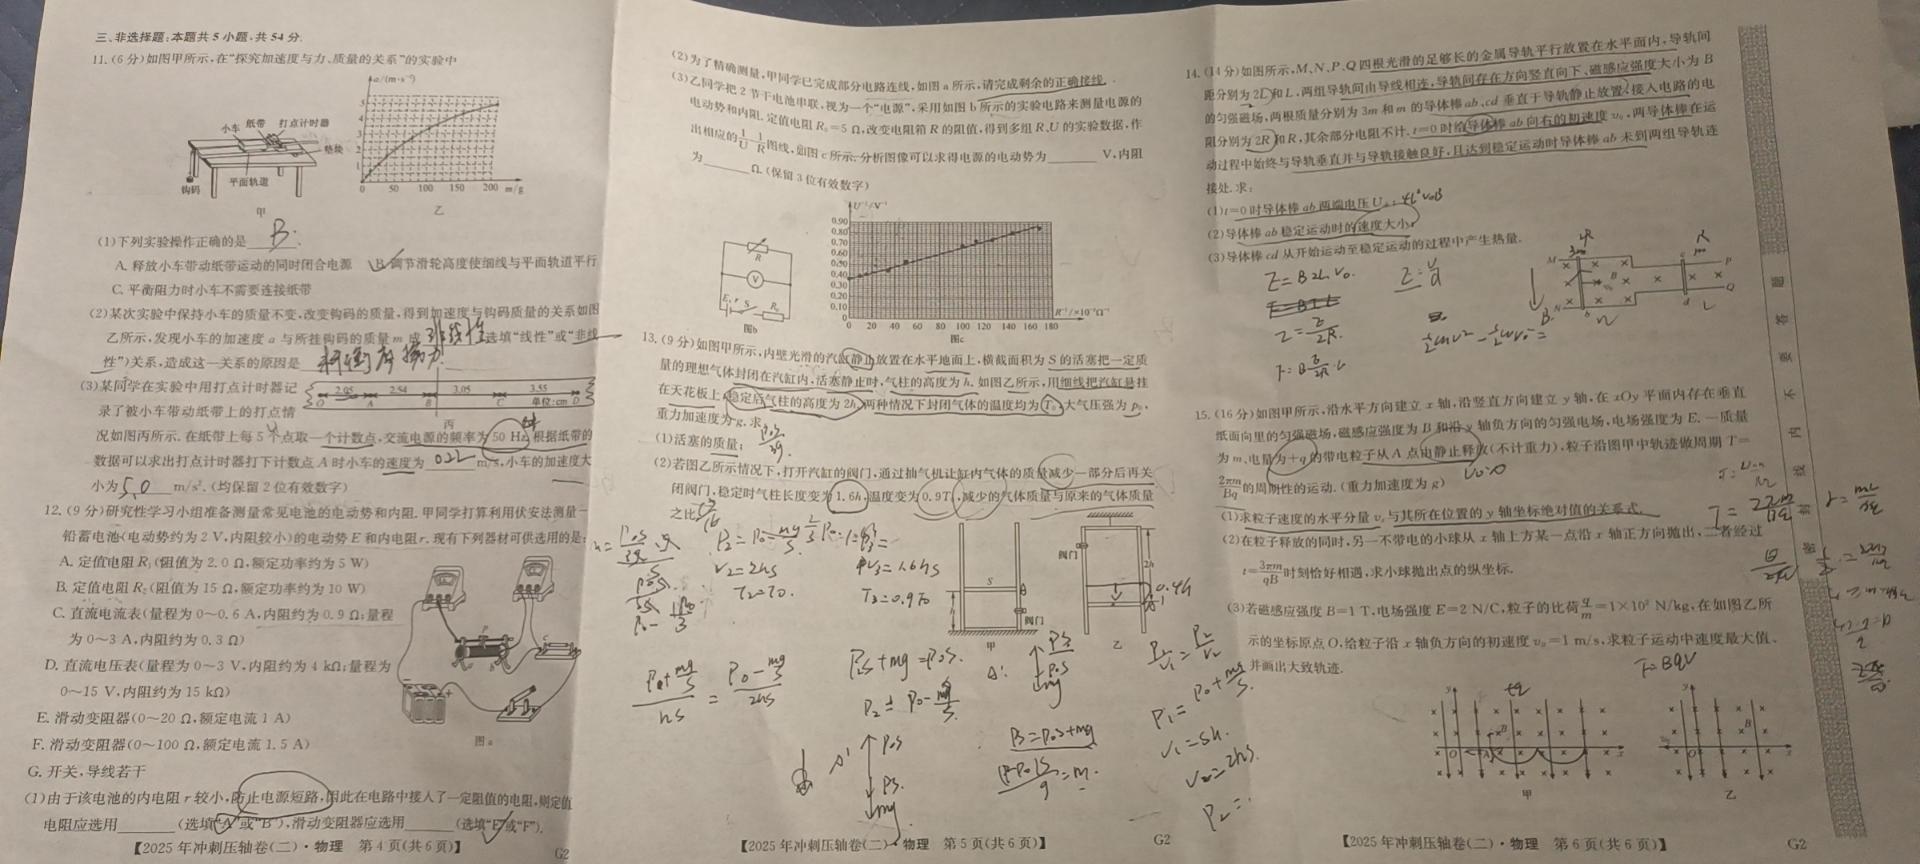 三、非选择题:本题共5小题,共54分.
11.(6分)如图甲所示,在“探究加速度与力、质量的关系”的实验中
a/(m·s⁻²)
小车 纸带 打点计时器
垫块
平面轨道
钩码
0 50 100 150 200 m/g
甲 乙
(1)下列实验操作正确的是 B .
A. 释放小车带动纸带运动的同时闭合电源 B. 调节滑轮高度使细线与平面轨道平行
C. 平衡阻力时小车不需要连接纸带
(2)某次实验中保持小车的质量不变,改变钩码的质量,得到加速度与钩码质量的关系如图
乙所示,发现小车的加速度 a 与所挂钩码的质量 m 成 非线性 (选填“线性”或“非线
性”)关系,造成这一关系的原因是
(3)某同学在实验中用打点计时器记
2.05 2.54 3.05 3.55
O A B C 单位:cm D
录了被小车带动纸带上的打点情
丙
况如图丙所示.在纸带上每5个点取一个计数点,交流电源的频率为50 Hz,根据纸带的
数据可以求出打点计时器打下计数点 A 时小车的速度为 0.22 m/s,小车的加速度大
小为 5.0 m/s².(均保留2位有效数字)
12.(9分)研究性学习小组准备测量常见电池的电动势和内阻.甲同学打算利用伏安法测量一
铅蓄电池(电动势约为2 V,内阻较小)的电动势 E 和内电阻 r.现有下列器材可供选用的是:
A. 定值电阻 R₁(阻值为2.0 Ω,额定功率约为5 W)
B. 定值电阻 R₂(阻值为15 Ω,额定功率约为10 W)
C. 直流电流表(量程为0~0.6 A,内阻约为0.9 Ω;量程
为0~3 A,内阻约为0.3 Ω)
D. 直流电压表(量程为0~3 V,内阻约为4 kΩ;量程为
0~15 V,内阻约为15 kΩ)
E. 滑动变阻器(0~20 Ω,额定电流1 A)
F. 滑动变阻器(0~100 Ω,额定电流1.5 A)
G. 开关,导线若干
图a
(1)由于该电池的内电阻 r 较小,防止电源短路,因此在电路中接入了一定阻值的电阻,则定值
电阻应选用______(选填“A”或“B”),滑动变阻器应选用______(选填“E”或“F”).
【2025年冲刺压轴卷(二)·物理 第4页(共6页)】 G2
(2)为了精确测量,甲同学已完成部分电路连线,如图a所示,请完成剩余的正确接线.
(3)乙同学把2节干电池串联,视为一个“电源”,采用如图b所示的实验电路来测量电源的
电动势和内阻.定值电阻 R₀=5 Ω,改变电阻箱 R 的阻值,得到多组 R、U 的实验数据,作
出相应的1/U-1/R图线,如图c所示.分析图像可以求得电源的电动势为______V,内阻
为______Ω.(保留3位有效数字)
U⁻¹/V⁻¹
0.90
0.80
0.70
0.60
0.50
0.40
0.30
0.20
0.10
0
0 20 40 60 80 100 120 140 160 180
R⁻¹/×10⁻³Ω⁻¹
R
V
E,r S R₀
图b 图c
13.(9分)如图甲所示,内壁光滑的汽缸静止放置在水平地面上,横截面积为 S 的活塞把一定质
量的理想气体封闭在汽缸内,活塞静止时,气柱的高度为 h.如图乙所示,用细线把汽缸悬挂
在天花板上,稳定后气柱的高度为2h,两种情况下封闭气体的温度均为 T₀,大气压强为 p₀,
重力加速度为 g,求:
(1)活塞的质量;
(2)若图乙所示情况下,打开汽缸的阀门,通过抽气机让缸内气体的质量减少一部分后再关
闭阀门,稳定时气柱长度变为1.6h,温度变为0.9T₀,减少的气体质量与原来的气体质量
之比.
V₂=2hS
T₂=T₀.
V₃=1.6hS
T₃=0.9T₀
阀门
S
h
阀门
2h
0.4h
甲 乙
V₁=Sh.
V₂=2hS.
【2025年冲刺压轴卷(二)·物理 第5页(共6页)】 G2
14.(14分)如图所示,M、N、P、Q四根光滑的足够长的金属导轨平行放置在水平面内,导轨间
距分别为2L和L,两组导轨间由导线相连,导轨间存在方向竖直向下、磁感应强度大小为 B
的匀强磁场,两根质量分别为3m和m的导体棒ab、cd垂直于导轨静止放置,接入电路的电
阻分别为2R和R,其余部分电阻不计.t=0时给导体棒ab向右的初速度v₀,两导体棒在运
动过程中始终与导轨垂直并与导轨接触良好,且达到稳定运动时导体棒ab未到两组导轨连
接处.求:
(1)t=0时导体棒ab两端电压U
(2)导体棒ab稳定运动时的速度大小;
(3)导体棒cd从开始运动至稳定运动的过程中产生热量.
M P
N Q
E=B2Lv₀.
15.(16分)如图甲所示,沿水平方向建立x轴,沿竖直方向建立y轴,在xOy平面内存在垂直
纸面向里的匀强磁场,磁感应强度为B和沿y轴负方向的匀强电场,电场强度为E.一质量
为m、电量为+q的带电粒子从A点由静止释放(不计重力),粒子沿图甲中轨迹做周期T=
2πm/Bq的周期性的运动.(重力加速度为g)
(1)求粒子速度的水平分量vₓ与其所在位置的y轴坐标绝对值的关系式.
(2)在粒子释放的同时,另一不带电的小球从x轴上方某一点沿x轴正方向抛出,二者经过
t=3πm/qB时刻恰好相遇,求小球抛出点的纵坐标.
(3)若磁感应强度B=1 T,电场强度E=2 N/C,粒子的比荷q/m=1×10² N/kg,在如图乙所
示的坐标原点O,给粒子沿x轴负方向的初速度v₀=1 m/s,求粒子运动中速度最大值、
并画出大致轨迹.
F=BqV
甲 乙
【2025年冲刺压轴卷(二)·物理 第6页(共6页)】 G2
密封线内不要答题